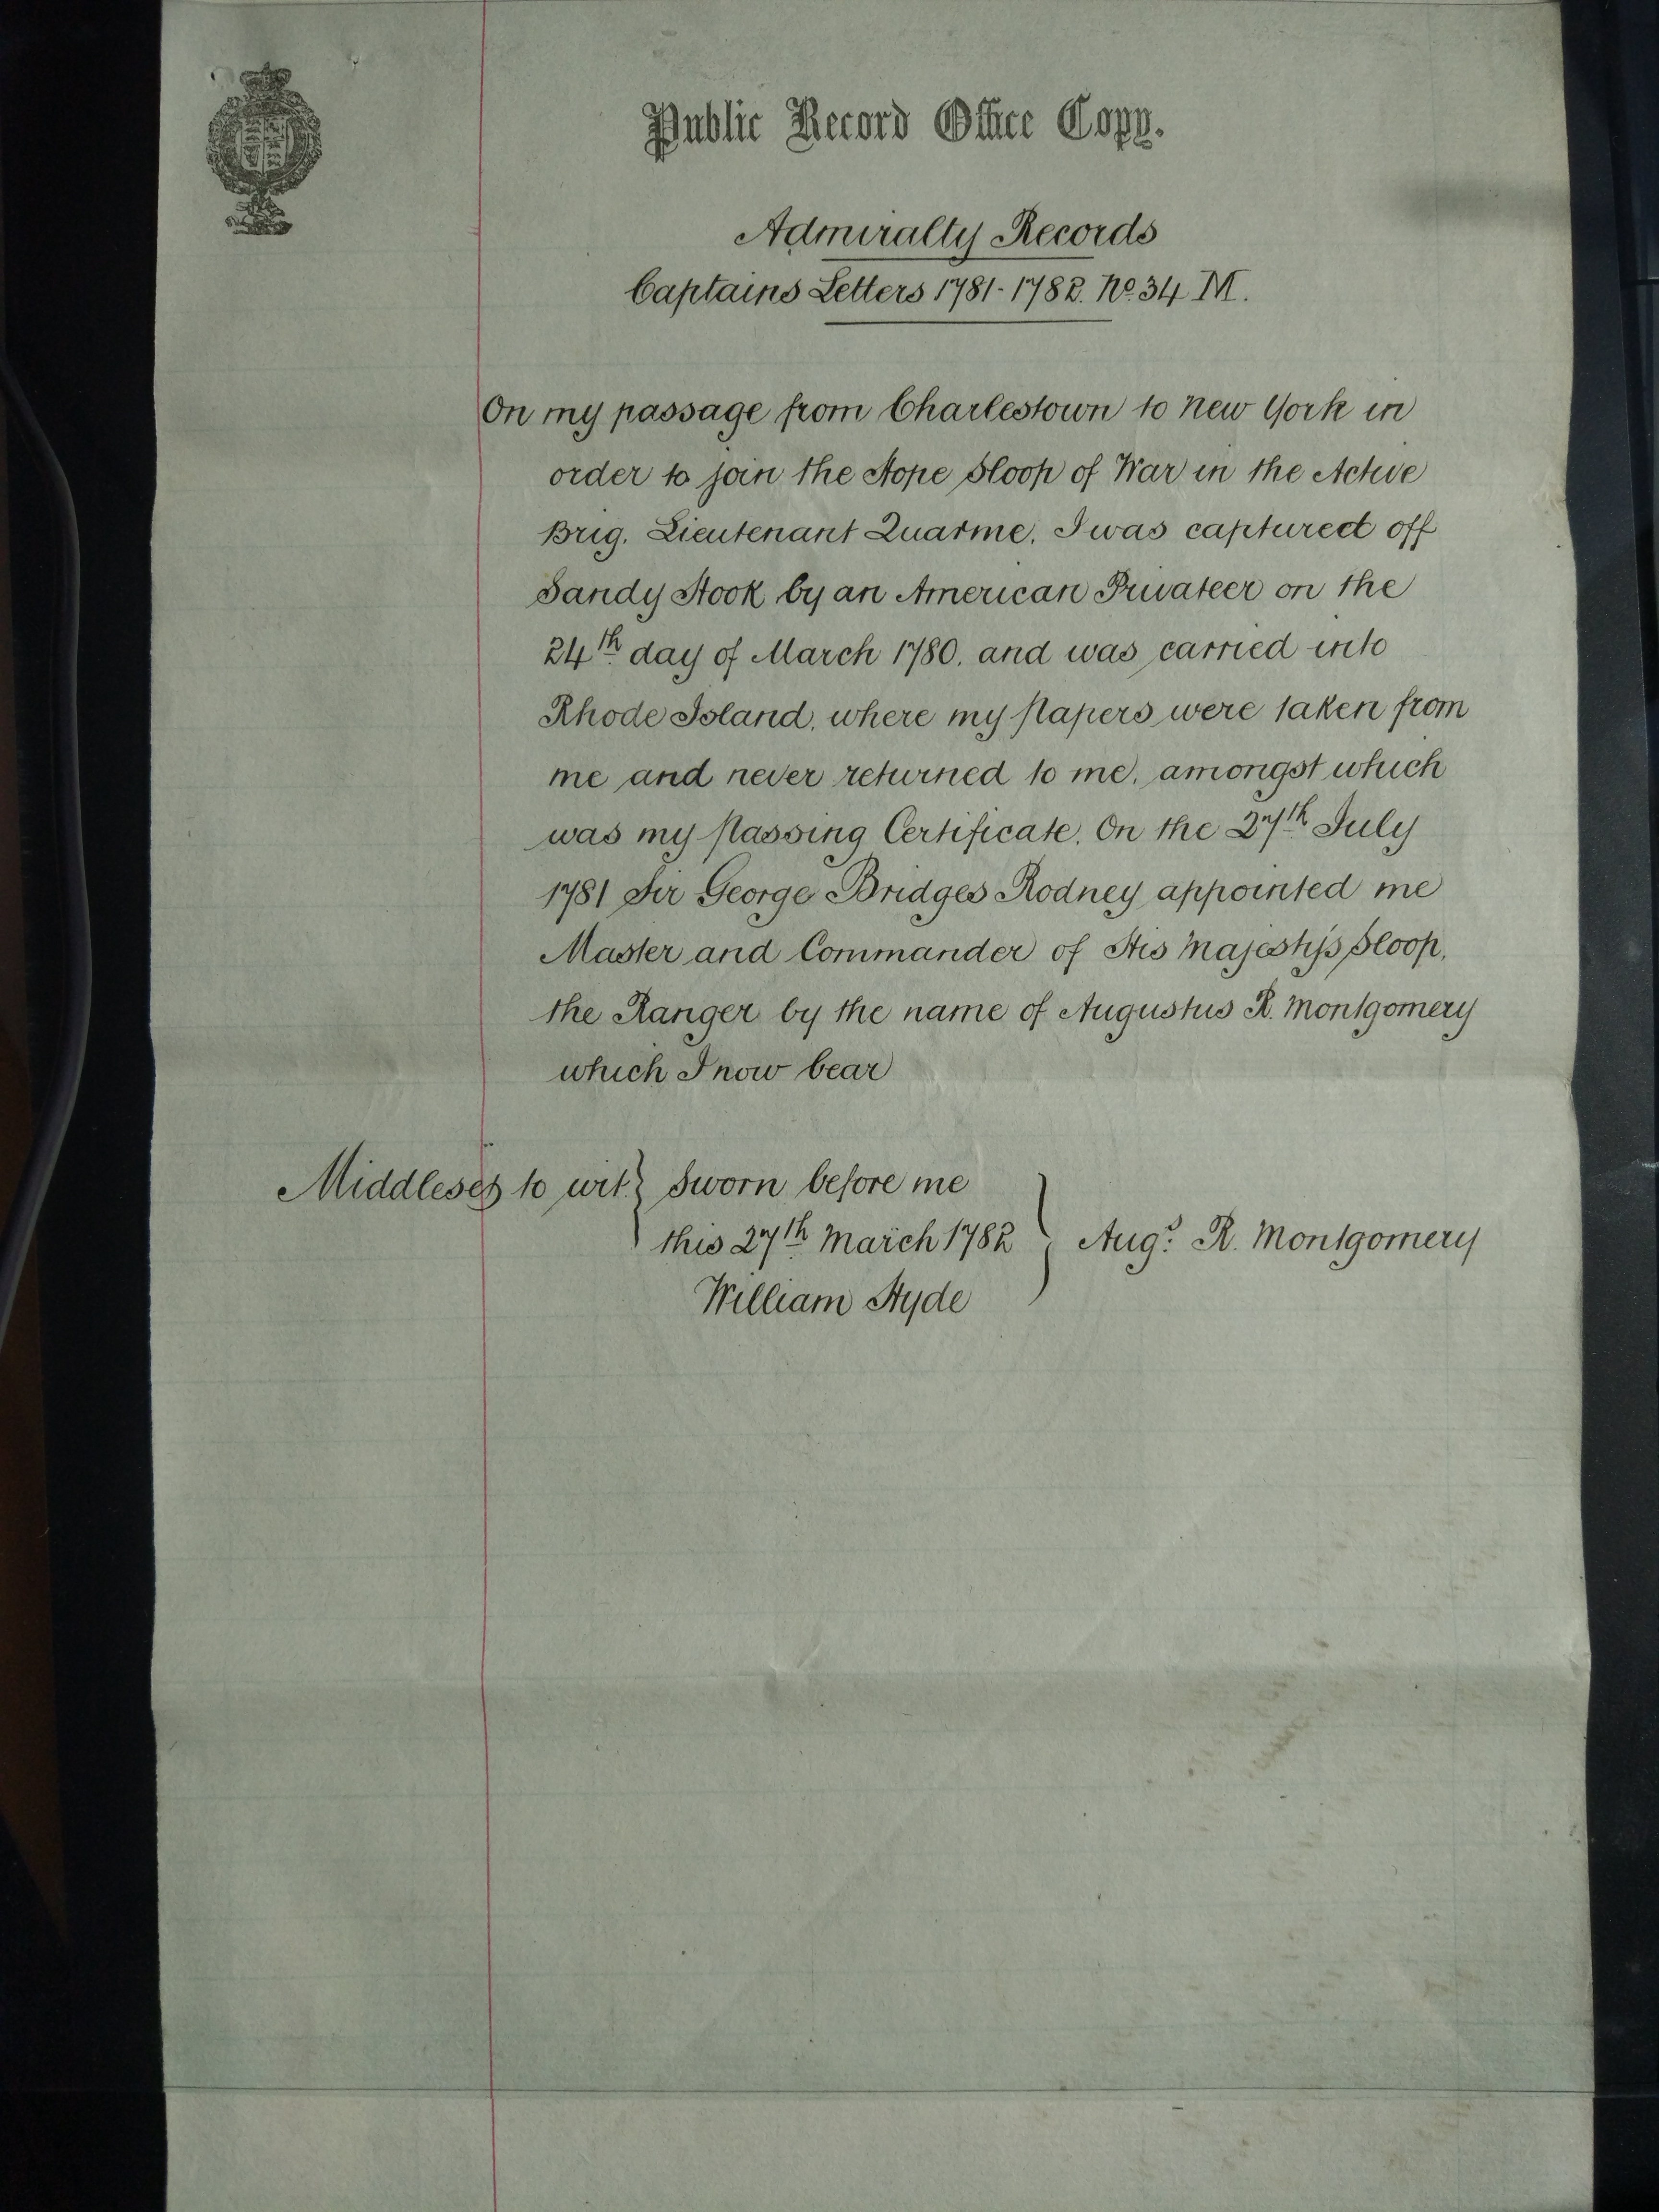 Public Record Office Copy.
Admiralty Records
Captains Letters 1781-1782. No. 34 M.
On my passage from Charlestown to New York in
order to join the Hope Sloop of War in the Active
Brig, Lieutenant Quarme, I was captured off
Sandy Hook by an American Privateer on the
24th day of March 1780, and was carried into
Rhode Island, where my Papers were taken from
me and never returned to me, amongst which
was my Passing Certificate. On the 27th July
1781 Sir George Bridges Rodney appointed me
Master and Commander of His Majesty's Sloop,
the Ranger by the name of Augustus R. Montgomery
which I now bear
Middlesex to wit } Sworn before me
this 27th March 1782 } Augs. R. Montgomery
William Hyde